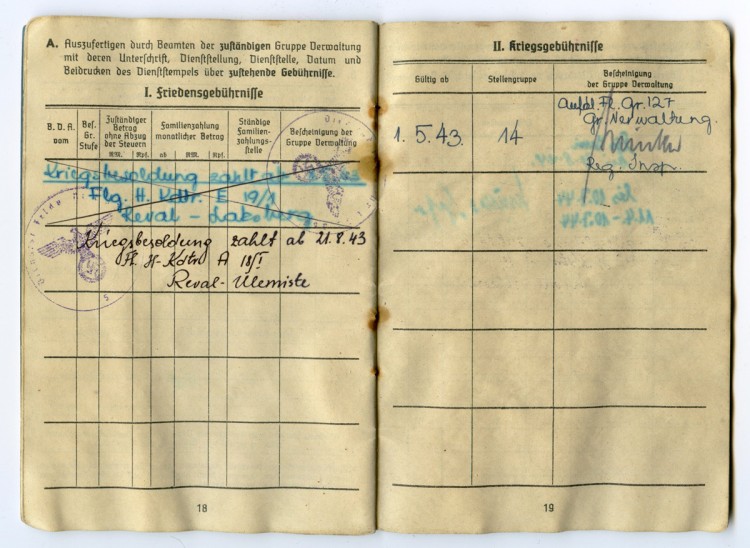 A. Auszufertigen durch Beamten der zuständigen Gruppe Verwaltung
mit deren Unterschrift, Dienststellung, Dienststelle, Datum und
Beidrucken des Dienststempels über zustehende Gebührnisse.
I. Friedensgebührnisse
B. D. A. vom
Bes. Gr. Stufe
Zuständiger Betrag ohne Abzug der Steuern
RM. Rpf.
Familienzahlung monatlicher Betrag
ab RM. Rpf.
Ständige Familien-zahlungs-stelle
Bescheinigung der Gruppe Verwaltung
Kriegsbesoldung zahlt ab
Flg. H. Kdtr. E 19/I
Reval – Laksberg
Kriegsbesoldung zahlt ab 21.8.43
Fl. H-Kdtr. A 18/I
Reval-Ülemiste
18
II. Kriegsgebührnisse
Gültig ab
Stellengruppe
Bescheinigung der Gruppe Verwaltung
1. 5. 43.
14
Aufkl. Fl. Gr. 127
Gr. Verwaltung.
Reg. Insp.
19